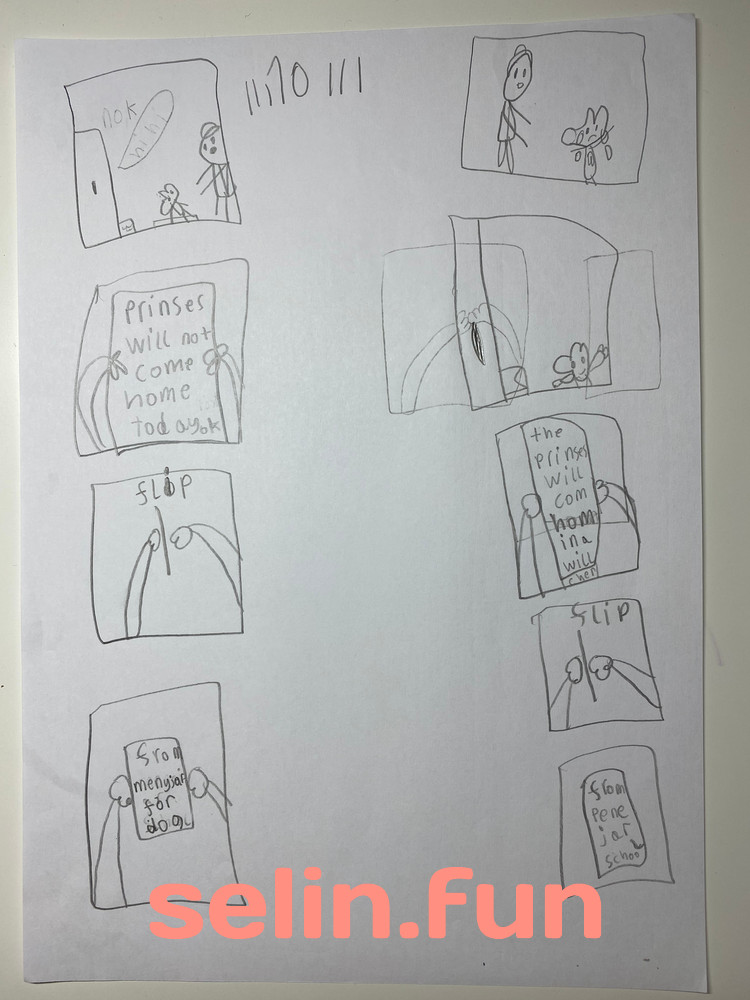 nok
hi hi
10
prinses
will not
come
home
today
ok
flip
from
menyjar
for
dog
the
prinses
will
com
hom
in a
will
cher
flip
from
pene
jar
school
selin.fun